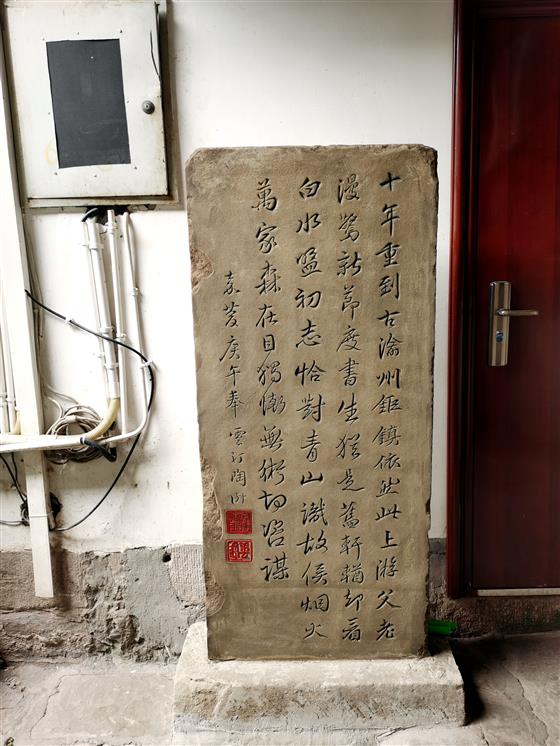 十年重到古渝州鉅鎮依然此上游父老
漫驚新節度書生猶是舊軒輶却看
白水盟初志恰對青山識故侯烟火
萬家森在目獨慚無術切咨謀
嘉慶庚午奉 雲汀陶澍